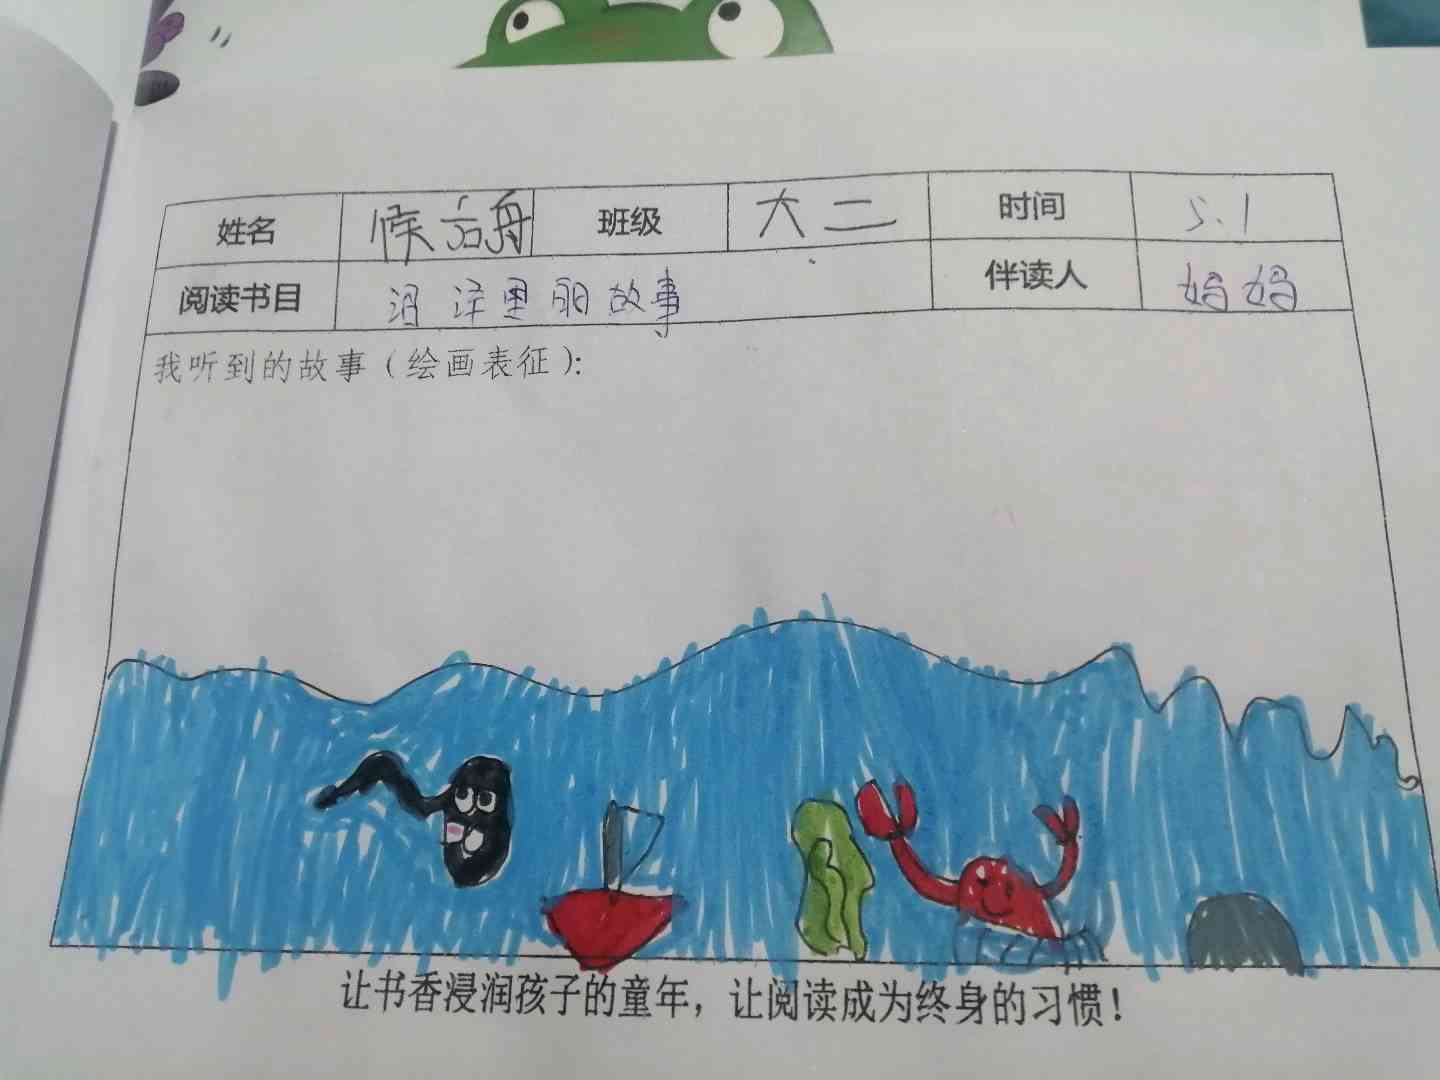 姓名 候言舟 班级 大二 时间 5.1
阅读书目 沼泽里的故事 伴读人 妈妈
我听到的故事（绘画表征）：
让书香浸润孩子的童年，让阅读成为终身的习惯！